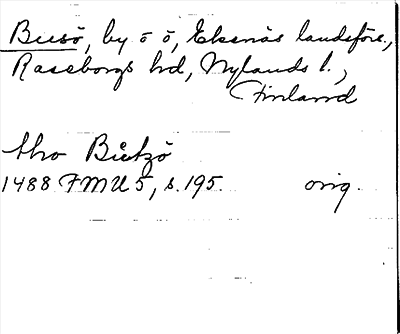 Busö, by o ö, Ekenäs landsförs.,
Raseborgs hd, Nylands l.,
Finland
tho Bittzö
1488 FMU 5, s. 195. orig.